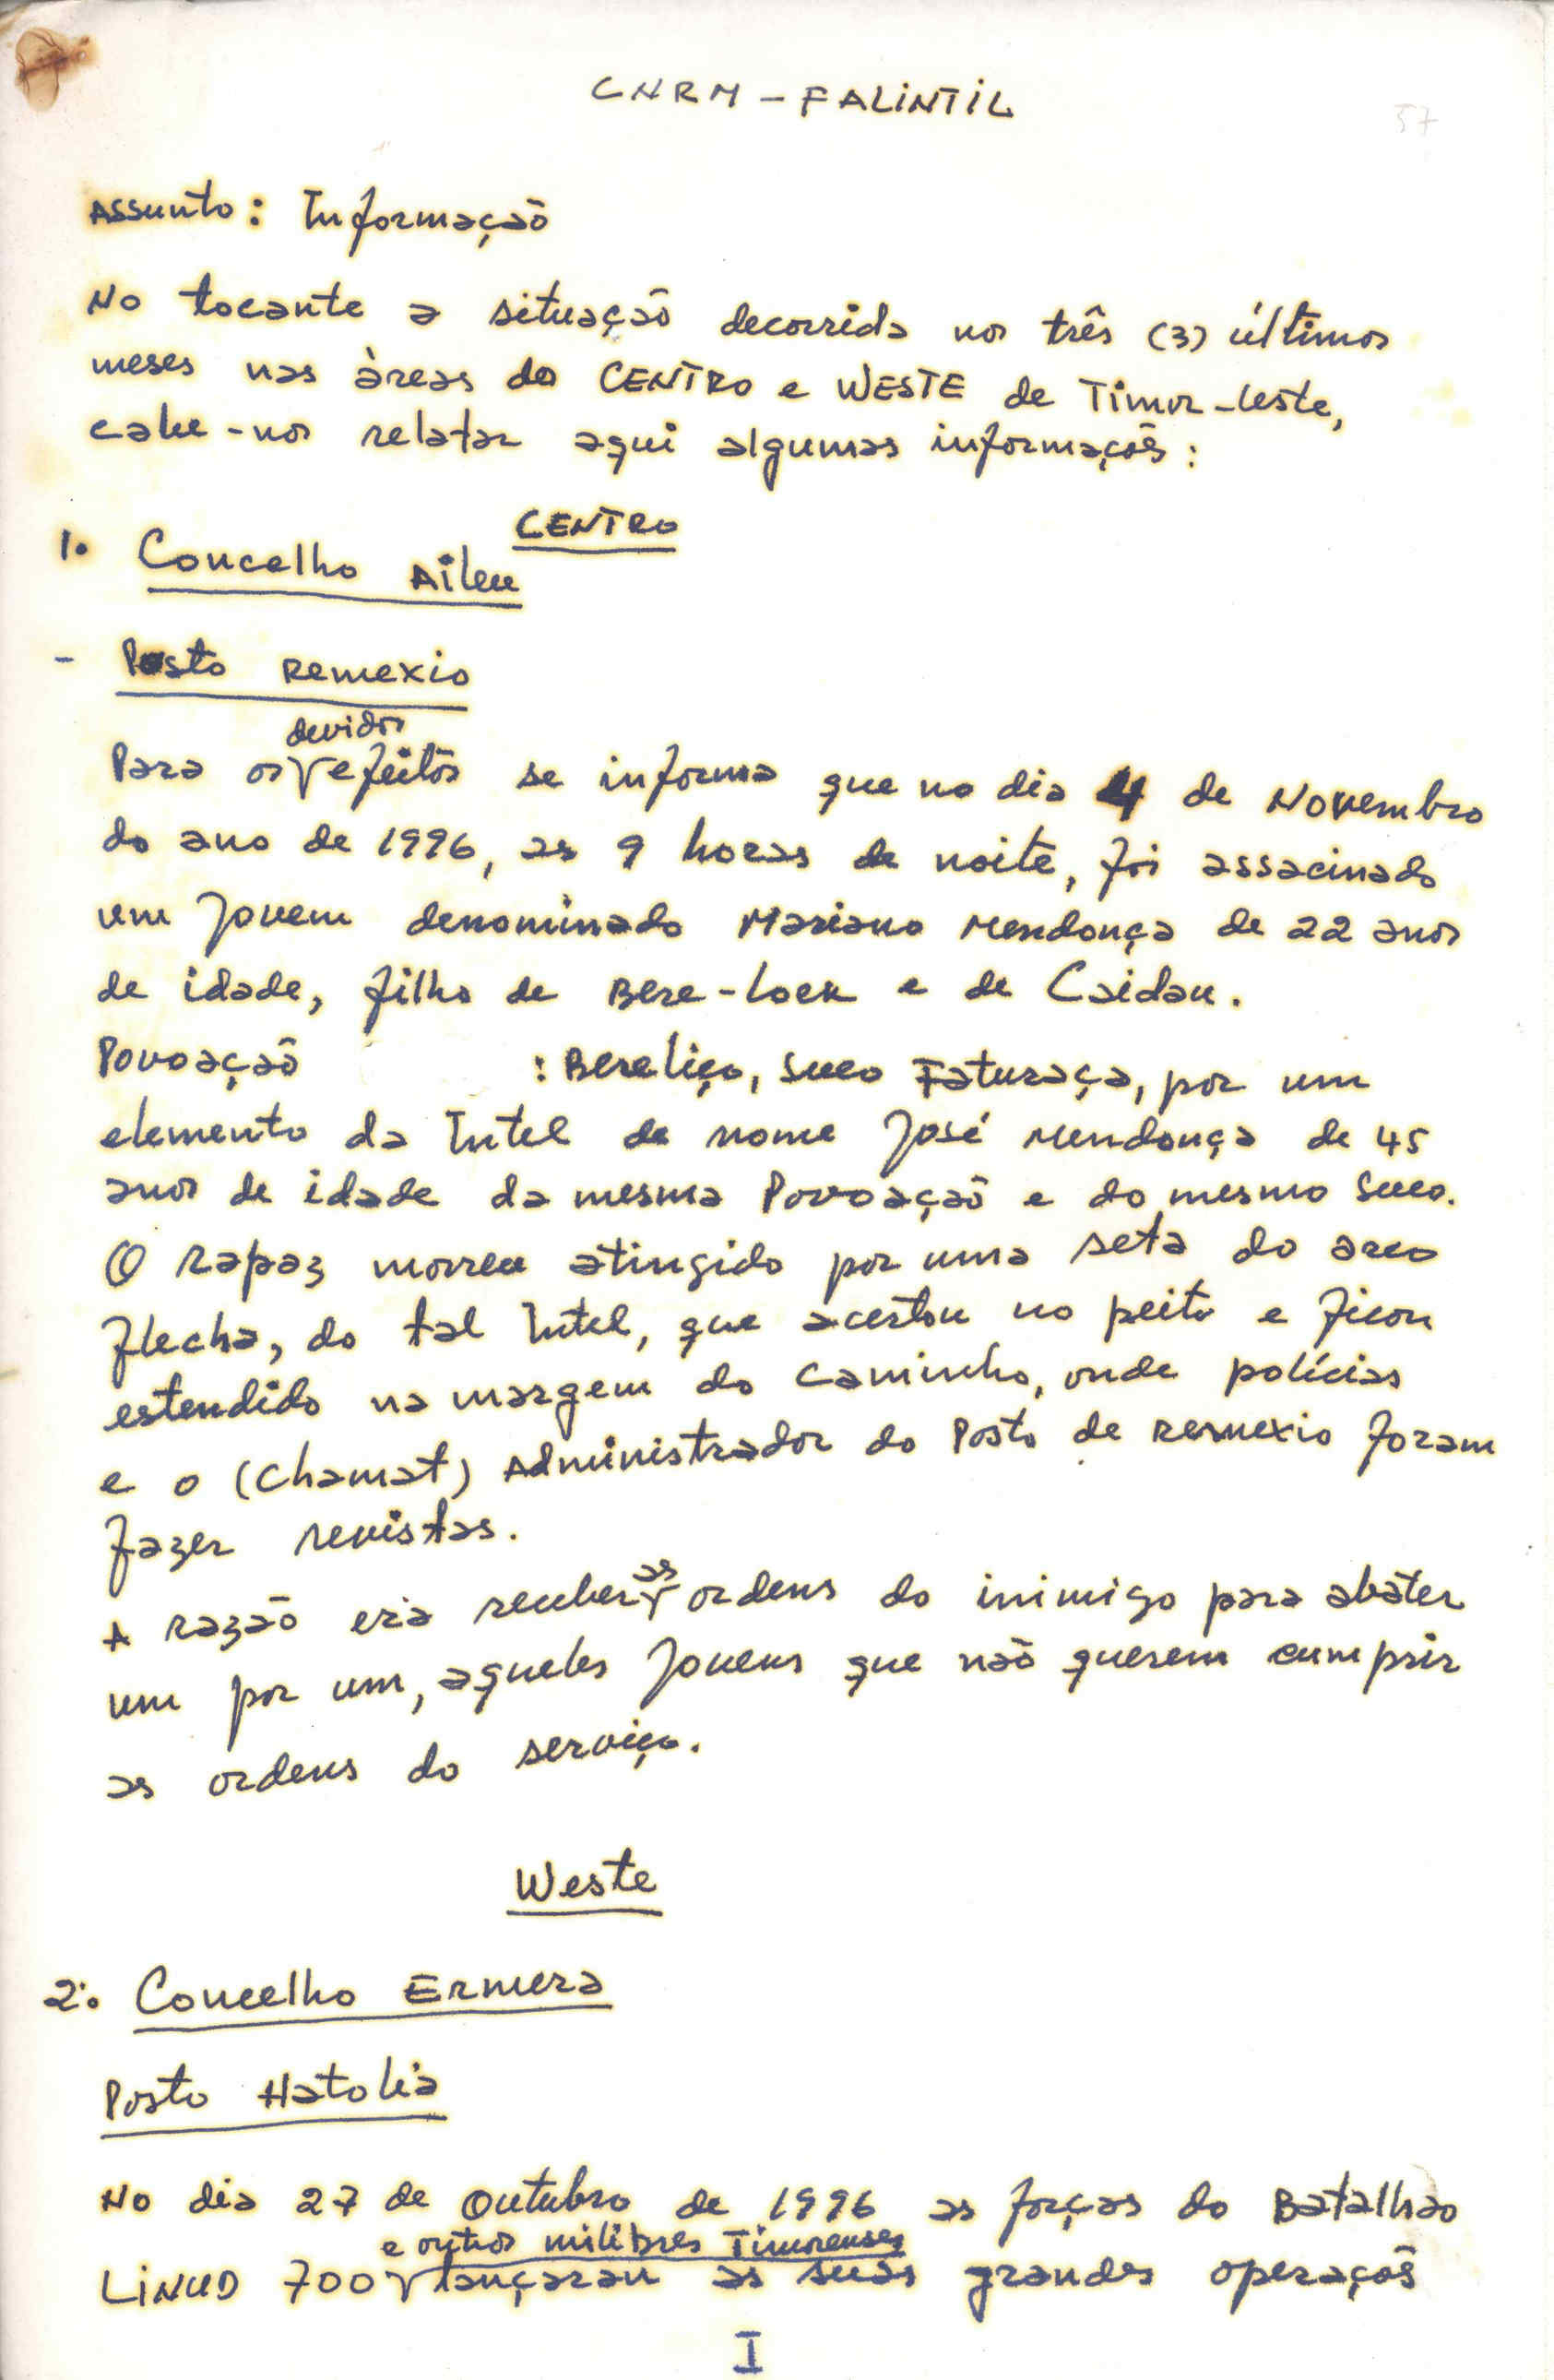 CNRM - FALINTIL
57
Assunto: Informação
No tocante a situação decorrida nos três (3) últimos
meses nas àreas do CENTRO e WESTE de Timor-Leste,
cabe-nos relatar aqui algumas informaçõs:
CENTRO
1. Concelho Aileu
- Posto Remexio
devidos
Para os efeitos se informa que no dia 4 de Novembro
do ano de 1996, as 9 horas de noite, foi assacinado
um Jovem denominado Mariano Mendonça de 22 anos
de idade, filho de Bere-Loek e de Caidau.
Povoação : Bereliço, Suco Faturaça, por um
elemento da Intel de nome José Mendonça de 45
anos de idade da mesma Povoação e do mesmo Suco.
O Rapaz morreu atingido por uma seta do arco
flecha, do tal Intel, que acertou no peito e ficou
estendido na margem do caminho, onde polícias
e o (Chamat) Administrador do Posto de Remexio foram
fazer revistas.
as
A razão era receber ordens do inimigo para abater
um por um, aqueles Jovens que não querem cumprir
as ordens do serviço.
Weste
2. Concelho Ermera
Posto Hatolia
No dia 27 de Outubro de 1996 as forças do Batalhão
e outros militares Timorenses
LINUD 700 lançaran as suas grandes operaçõs
I